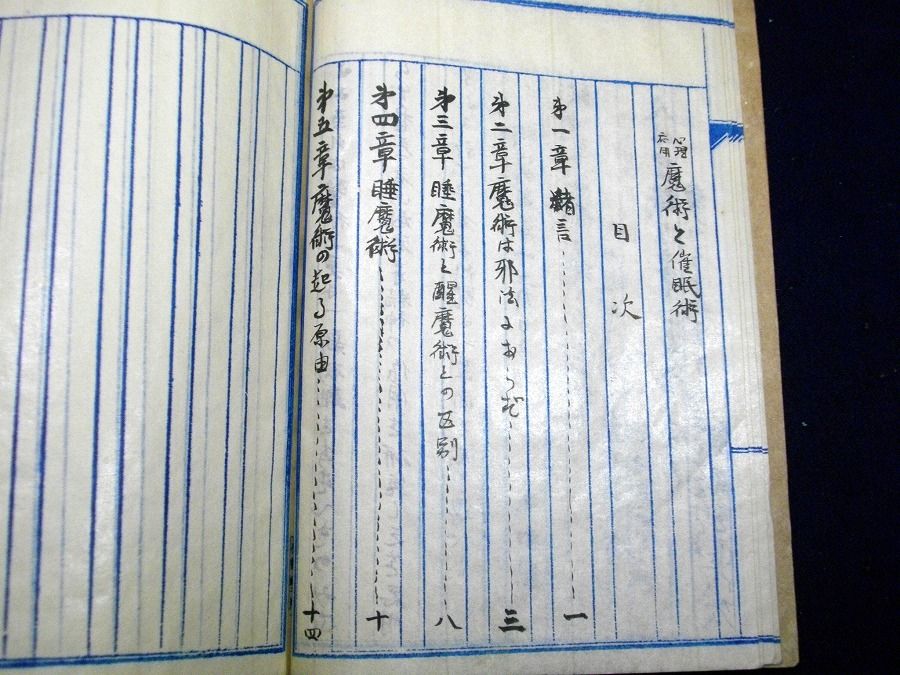 心理応用 魔術と催眠術
目次
第一章 緒言 一
第二章 魔術は邪法にあらず 三
第三章 睡魔術と醒魔術との区別 八
第四章 睡魔術 十
第五章 魔術の起る原由 十四